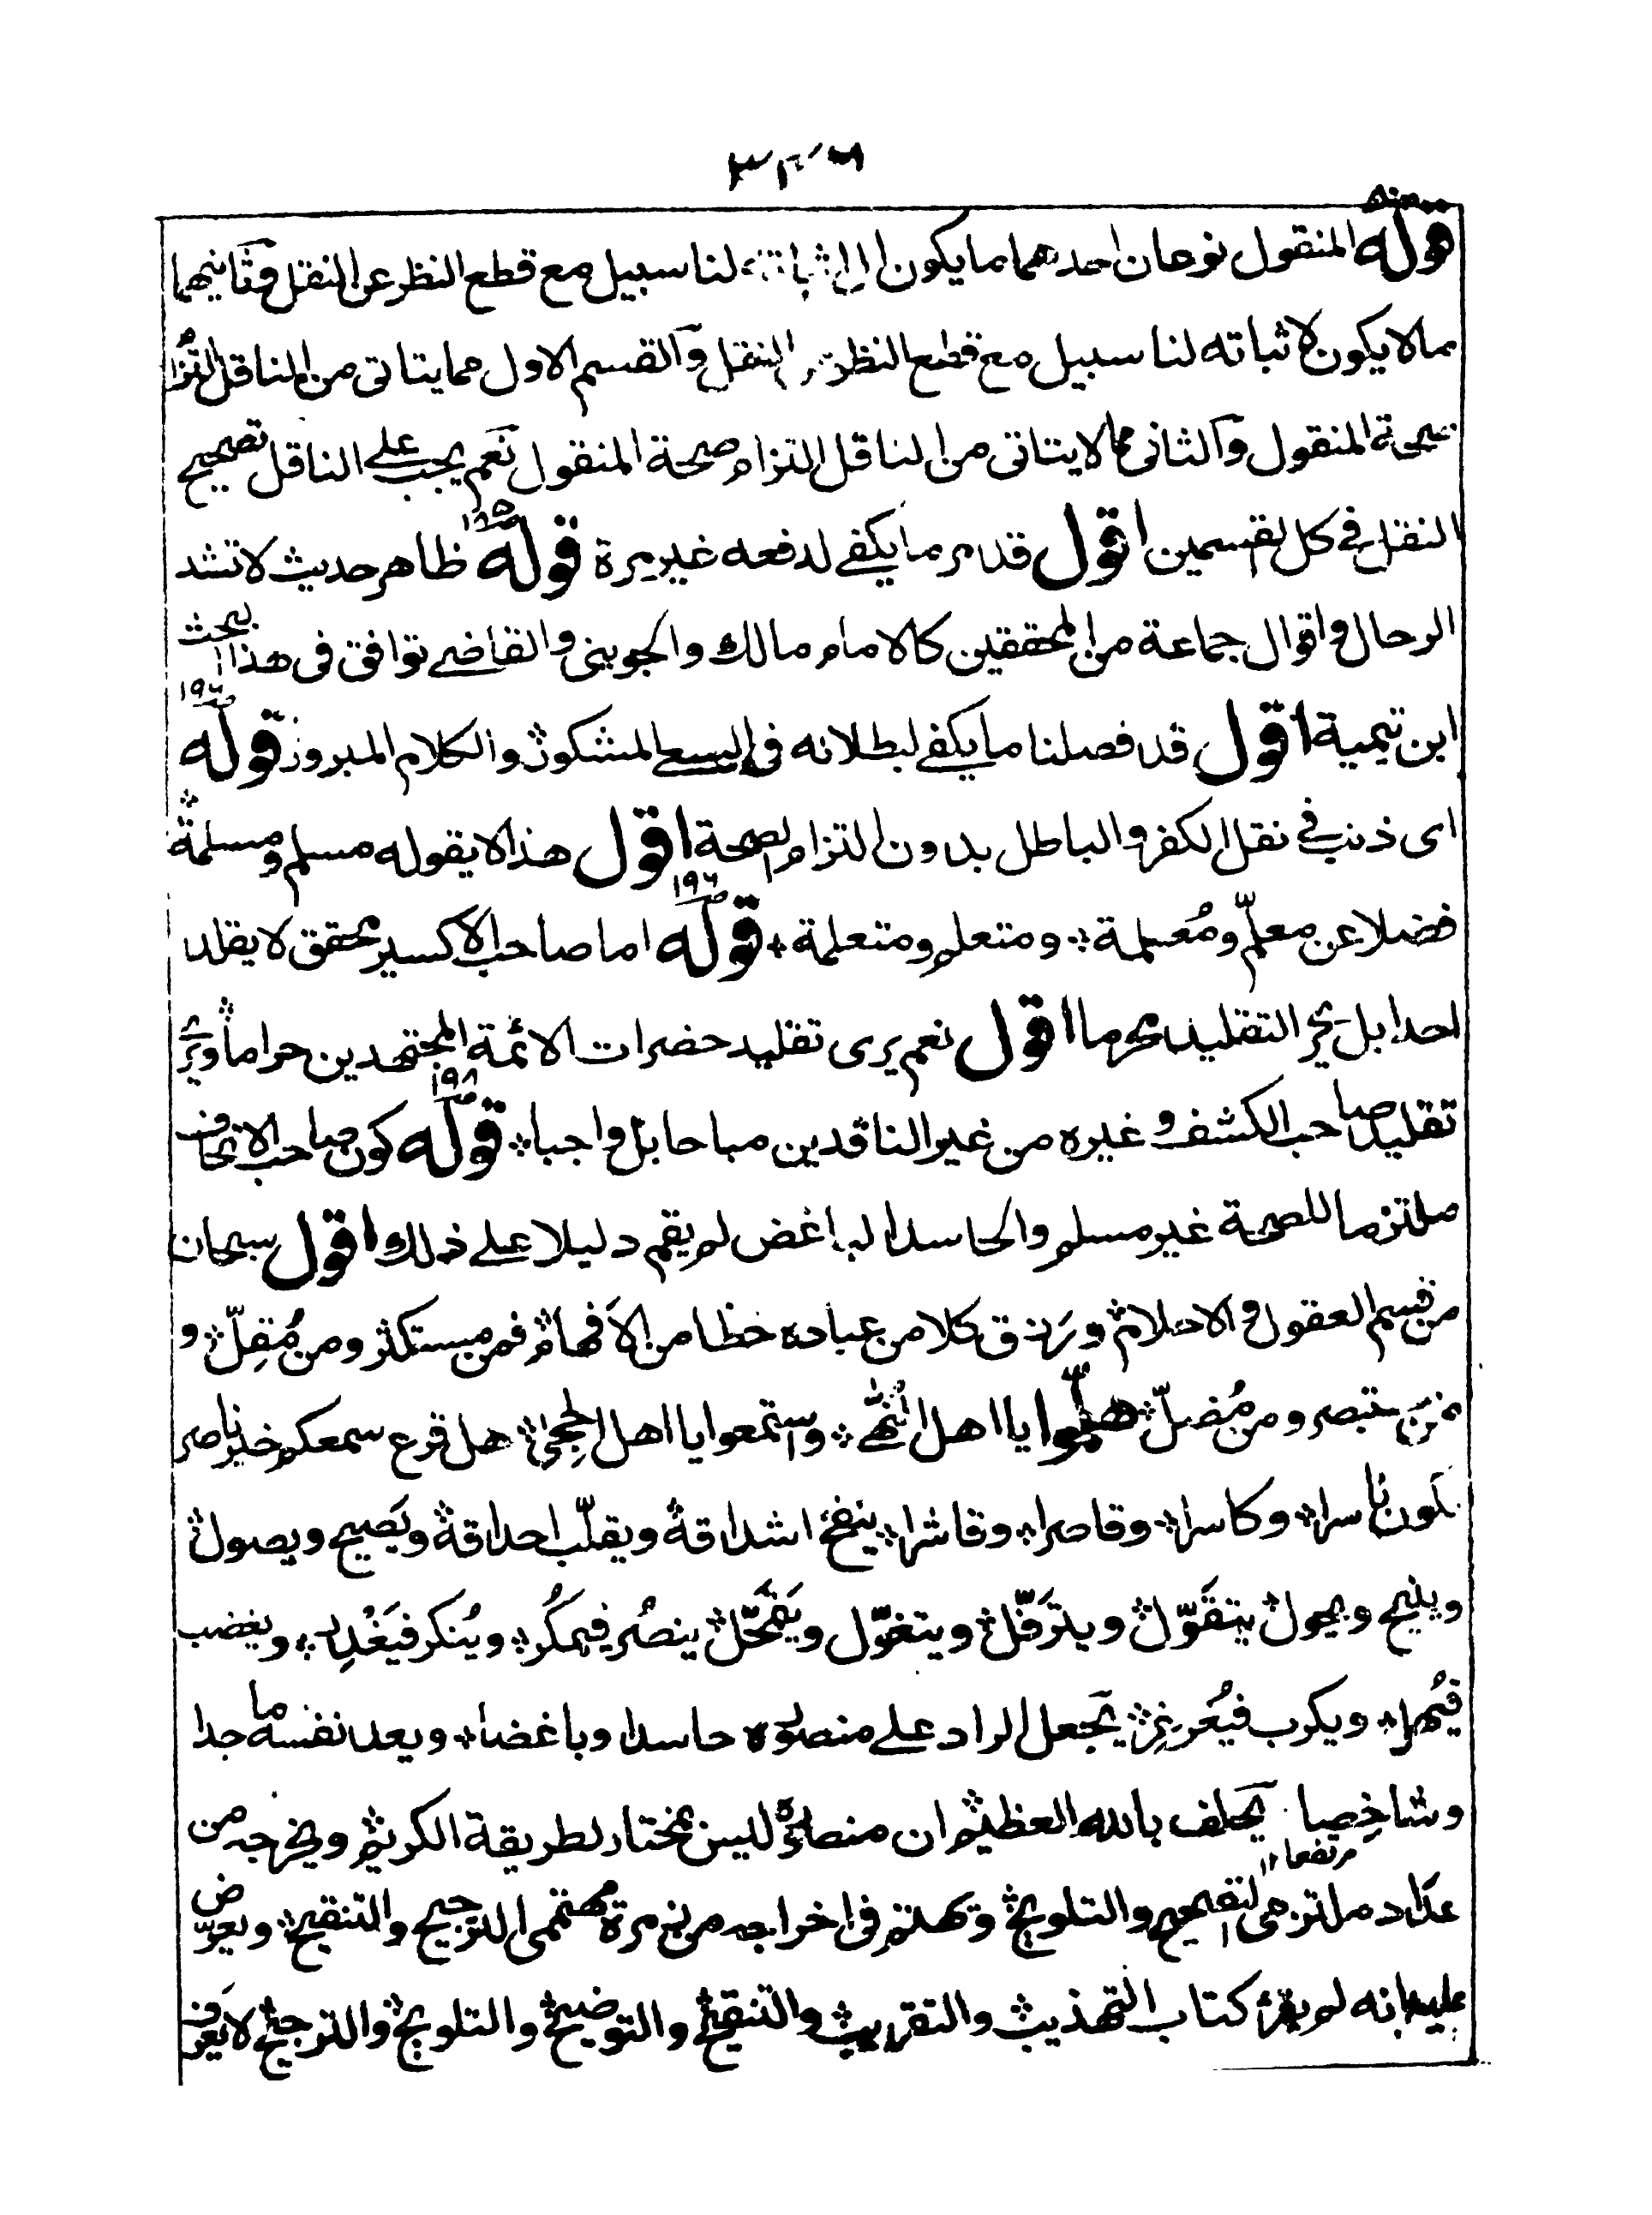 قوله المنقول نوعان احدهما ما يكون لنا سبيل مع قطع النظر عن النقل وثانيهما
ما لا يكون لاثباته لنا سبيل مع قطع النظر النقل والقسم الاول مما يتاتى من الناقل التزام
صحة المنقول والثانى مما لا يتاتى من الناقل التزام صحة المنقول نعم يجب على الناقل تصحيح
النقل فى كل القسمين اقول قد مر ما يكفے لدفعه غير مرة قوله ظاهر حديث لا تشد
الرحال واقوال جماعة من المحققين كالامام مالك والجوينى والقاضے توافق فى هذا البحث
ابن تيمية اقول قد فصلنا ما يكفے لبطلانه فى السعے المشكور والكلام المبرور قوله ١٩٦
اى ذنب فى نقل الكفر والباطل بدون التزام الصحة اقول هذا لا يقوله مسلم ومسلمة
فضلا عن معلّم ومُعلمة ومتعلم ومتعلمة قوله ١٩٦ اما صاحب الاكسير محقق لا يقلد
احدا بل يرى التقليد محرما اقول نعم يرى تقليد حضرات الائمة المجتهدين حراما ويرى
تقليد صاحب الكشف وغيره من غير الناقدين مباحا بل واجبا قوله ١٩٨ كون صاحب الاتحاف
ملتزما للصحة غير مسلم والحاسد الباغض لم يقم دليلا على ذلك اقول سبحان
من قسم العقول والاحلام ورَزق كلا من عباده حظا من الاَفهام فمن مستكثر ومن مُقِلّ و
من مستبصر ومن مُضلّ هلمّوا يا اهل النُّهٰے واستمعوا يا اهل الحِجىٰ هل قرع سمعكم خبر ناصر
يكون ناسرا وكاسرا وقاصرا وقاشرا ينفخ اشداقه ويقلّب احداقه ويَصيح ويصول
وينيح ويجول يتقَوّل ويترَفّل ويتغوّل ويَتمحّل ينصُر فيمكُر ويُنكر فيَغْدِر ويغضب
ويكرب يَجعل الراد على منصوره حاسدا وباغضا ويعد نفسه ماجدا
وشاخِصا يَحلف بالله العظيم ان منصوره ليس بمختار لطريقة الكريم ويخرجه من
مرتفعا ١٢
عدَاد ملتزمى التصحيح والتلويح ويهتم فى اخراجه من زمرة مهتمى الترجيح والتنقيح ويعرّض
عليه بانه لم يقرأ كتاب التهذيب والتقريب والتنقيح والتوضيح والتلويح والترجيح لا يَعرف